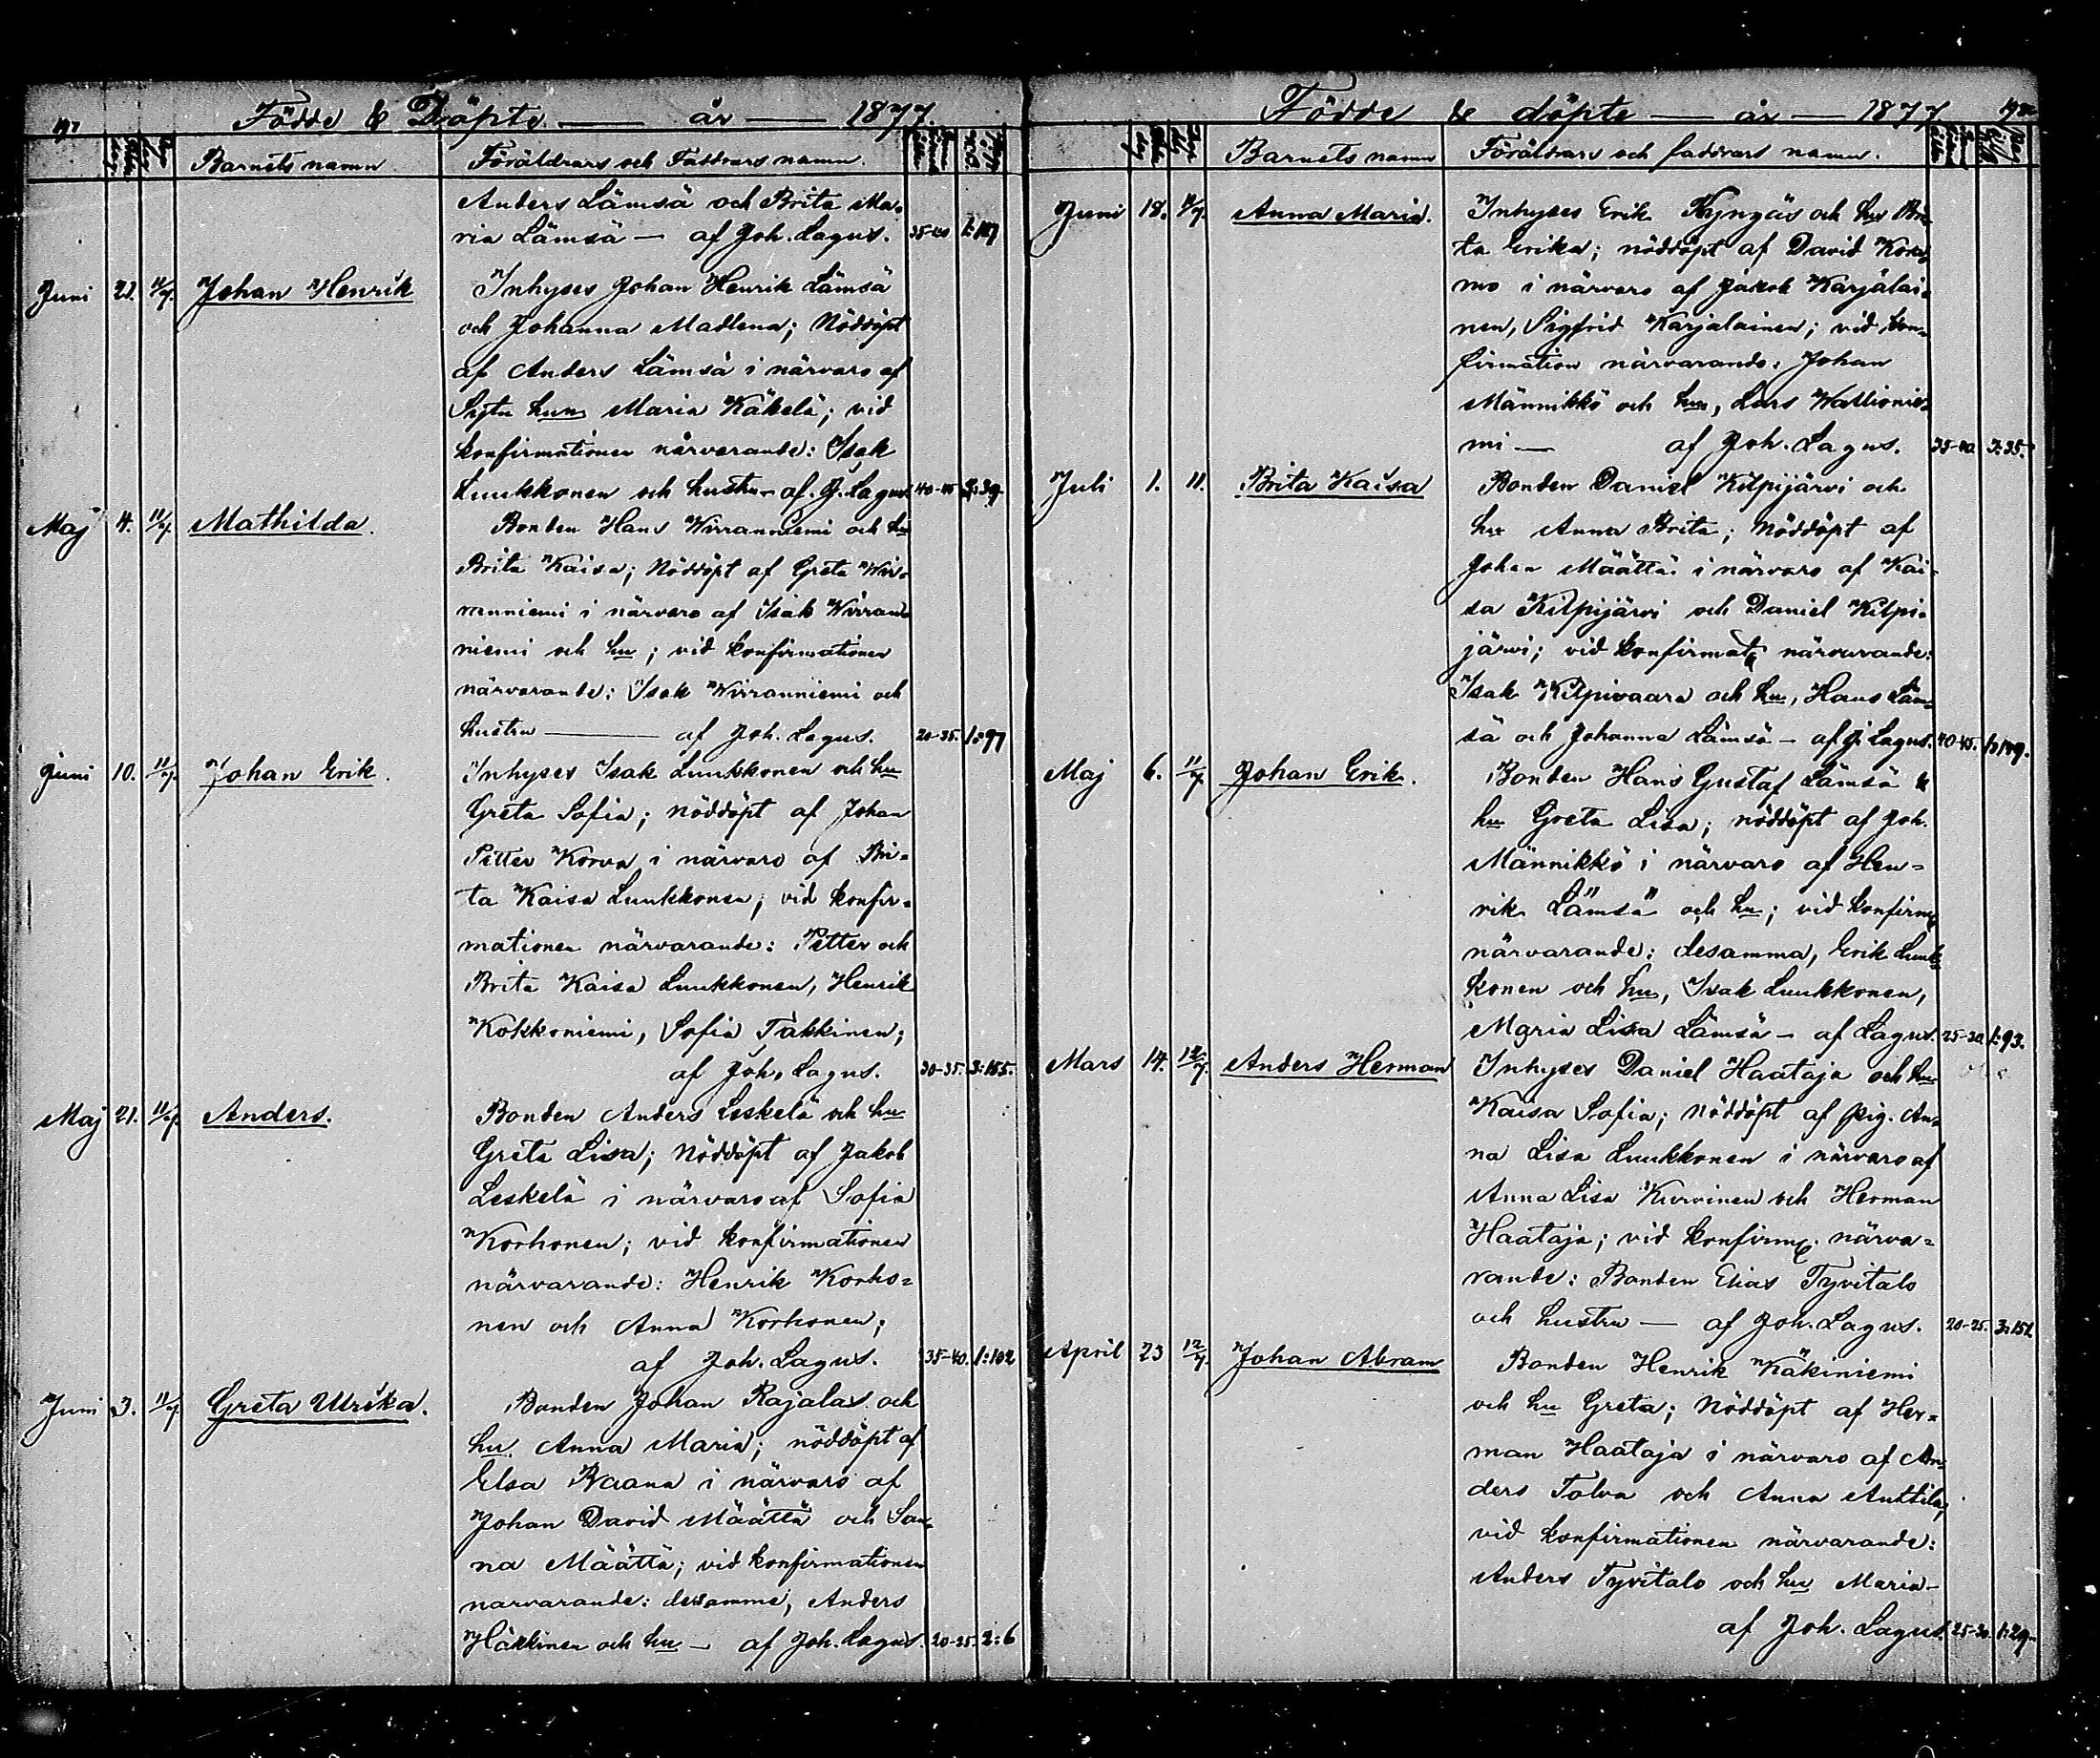 197 Födde & Döpte — år — 1877.
Barnets namn Föräldrars och Faddrars namn.
Anders Lämsä och Brita Ma-
ria Lämsä — af Joh. Lagus. 35-40 1:127
Juni 21. 11/7. Johan Henrik Inhyses Johan Henrik Lämsä
och Johanna Madlena; Nöddöpt
af Anders Lämsä i närvaro af
Sytn hum Maria Käkelä; vid
konfirmationen närvarande: Isak
Luukkonen och hustru af J. Lagus 40-45 3:39.
Maj 4. 11/7. Mathilda. Bonden Hans Wirranniemi och hu
Brita Kaisa; Nöddöpt af Greta Wir-
ranniemi i närvaro af Isak Wirran-
niemi och hu; vid konfirmationen
närvarande: Isak Wirranniemi och
hustru — af Joh. Lagus. 20-35. 1:97
Juni 10. 11/7. Johan Erik. Inhyses Isak Luukkonen och hu
Greta Sofia; nöddöpt af Johan
Petter Korva i närvaro af Bri-
ta Kaisa Luukkonen; vid konfir-
mationen närvarande: Petter och
Brita Kaisa Luukkonen, Henrik
Kokkoniemi, Sofia Takkinen;
af Joh. Lagus. 30-35. 3:155.
Maj 21. 11/7. Anders. Bonden Anders Leskelä och hu
Greta Lisa; Nöddöpt af Jakob
Leskelä i närvaro af Sofia
Korhonen; vid konfirmationen
närvarande: Henrik Korho-
nen och Anna Korhonen;
af Joh. Lagus. 35-40. 1:102
Juni 3. 11/7. Greta Ulrika. Bonden Johan Rajalas och
hu. Anna Maria; nöddöpt af
Elsa Raana i närvaro af
Johan David Määttä och San-
na Määttä; vid konfirmationen
narvarande: desamme, Anders
Häkkinen och hu — af Joh. Lagus. 20-25. 2:6
Födde & döpte — år — 1877 198
Barnets namn Föräldrars och faddrars namn.
Juni 18. 11/7. Anna Maria. Inhyses Erik Kyngäs och hu Bri-
ta Erika; nöddöpt af David Koru-
mo i närvaro af Jakob Karjalai-
nen, Sigfrid Karjalainen; vid kon-
firmation närvarande: Johan
Männikkö och hu, Lars Wallionie-
mi — af Joh. Lagus. 35-40. 3:35.
Juli 1. 11. Brita Kaisa Bonden Daniel Kilpijärvi och
hu Anna Brita; Nöddöpt af
Johan Määttä i närvaro af Kai-
sa Kilpijärvi och Daniel Kilpi-
järvi; vid konfirmat närvarande:
Isak Kilpivaara och hu, Hans Läm-
sä och Johanna Lämsä — af J. Lagus. 40-45. 1:149.
Maj 6. 11/7 Johan Erik. Bonden Hans Gustaf Lämsä &
hu Greta Lisa; nöddöpt af Joh.
Männikkö i närvaro af Hen-
rik Lämsä och hu; vid konfirm
närvarande: desamma, Erik Luuk-
konen och hu, Isak Luukkonen,
Maria Lisa Lämsä — af Lagus. 25-30. 1:93.
Mars 14. 12/7. Anders Herman Inhyses Daniel Haataja och hu
Kaisa Sofia; Nöddöpt af pig. An-
na Lisa Luukkonen i närvaro af
Anna Lisa Kurvinen och Herman
Haataja; vid konfirm. närva-
rande: Bonden Elias Tyvitalo
och hustru — af Joh. Lagus. 20-25. 3:152
April 23 12/7. Johan Abram Bonden Henrik Käkiniemi
och hu Greta; Nöddöpt af Her-
man Haataja i närvaro af An-
ders Tolva och Anna Anttila;
vid konfirmationen närvarande:
Anders Tyvitalo och hu Maria —
af Joh. Lagus. 25-30. 1:29.